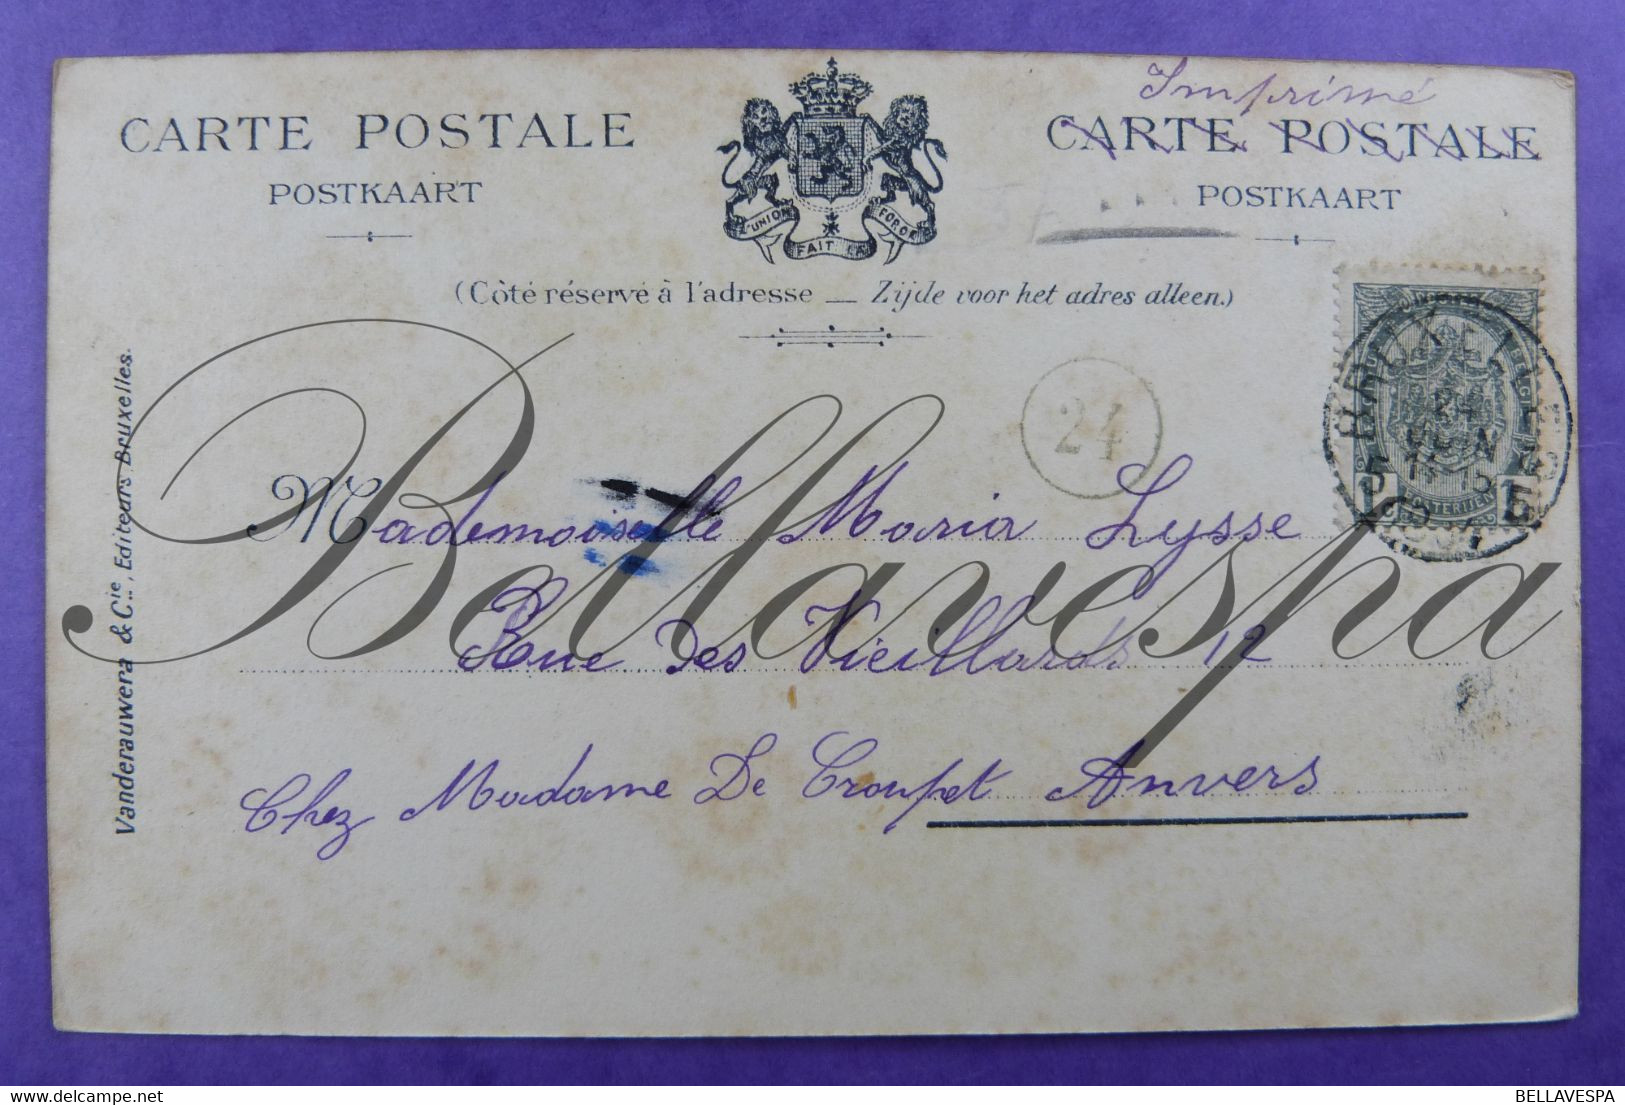 Imprimé
CARTE POSTALE
CARTE POSTALE
POSTKAART
POSTKAART
L'UNION FAIT LA FORCE
(Côté réservé à l'adresse — Zijde voor het adres alleen.)
BRUXELLES
24
JUIN
5 5
1904
1 1
24
Mademoiselle Maria Lysse
Rue Des Vieillards 12
Chez Madame De Troupet Anvers
Vanderauwera & Cie, Editeurs Bruxelles.
Bellavespa
BELLAVESPA